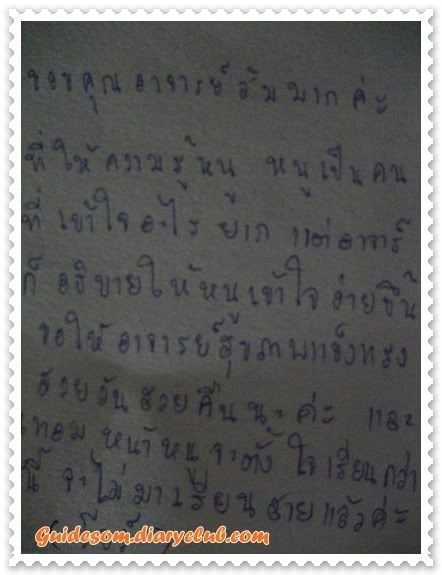 ขอขคุณอาจารย์ส้มมากค่ะ
ที่ให้ความรู้หนู หนูเป็นคน
ที่เข้าใจอะไรยาก แต่อาจารย์
ก็อธิบายให้หนูเข้าใจง่ายขึ้น
ขอให้อาจารย์สุขภาพแข็งแรง
สวยวันสวยคืนนะค่ะ และ
เทอมหน้าหนูจะตั้งใจเรียนกว่า
นี้ จะไม่มาเรียนสายแล้วค่ะ
Guidesom.diaryclub.com